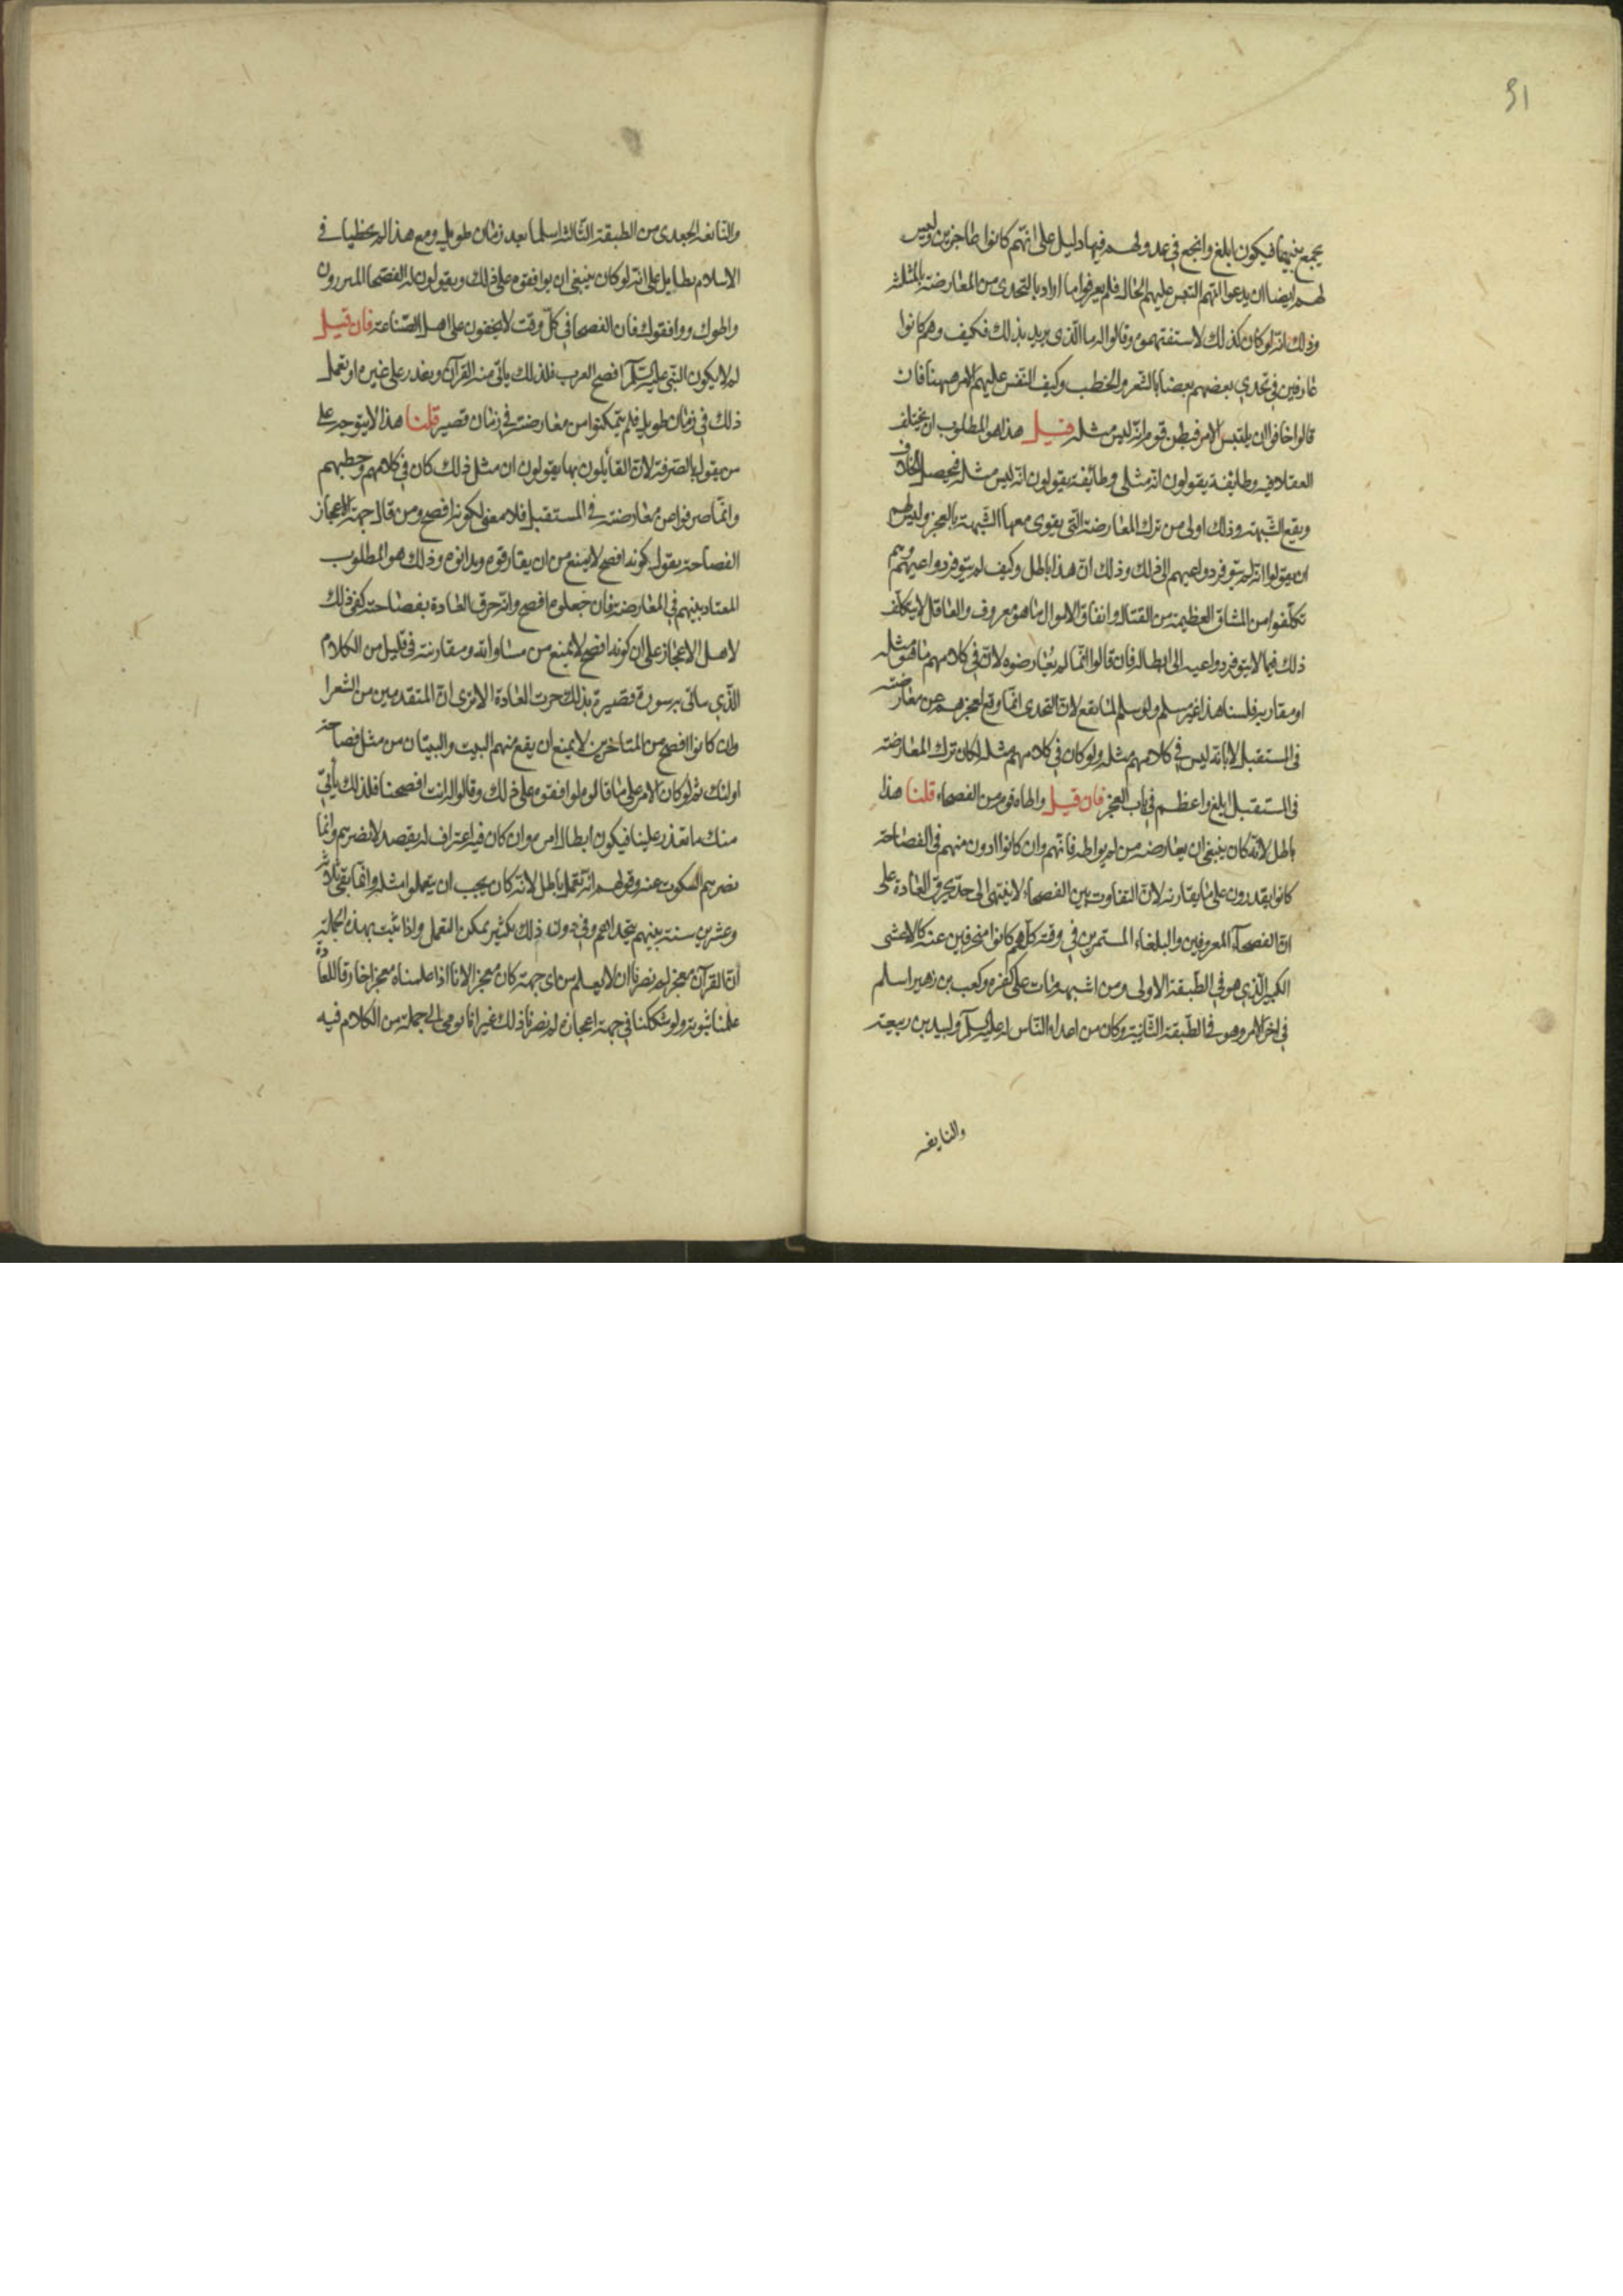 51
يجمع بينهما فيكون ابلغ وانجع في عدولهم فيها دليل على انهم كانوا عاجزين وليس
لهم ايضا ان يدعوا انهم التبس عليهم الحال فلم يعرفوا ما اراد بالتحدى من المعارضة بالمثلية
وذلك انه لو كان كذلك لاستفتهموه وقالوا له ما الذى يريد بذلك فكيف وهم كانوا
عارفين في تحدي بعضهم بعضا بالشعر والخطب وكيف التبس عليهم الامر ههنا فان
قالوا خافوا ان يلتبس الامر فيظن قوم انه ليس مثله قيل هذا هو المطلوب ان يختلف
العقلا فيه وطايفة يقولون انه مثلى وطائفة يقولون انه ليس مثله فيحصل الخلاف
ويقع الشبهة وذلك اولى من ترك المعارضة التى يقوى معها الشبهة بالعجز وليس لهم
ان يقولوا انه لم يتوفر دواعيهم الى ذلك وذلك ان هذا باطل وكيف لم يتوفر دواعيهم وهم
تكلفوا من المشاق العظيمة من القتال وانفاق الاموال ما هو معروف والعاقل لا يتكلف
ذلك فيما لا يتوفر دواعيه الى ابطاله فان قالوا انما لم يعارضوه لان في كلامهم ما هو مثله
او مقاربه قلنا هذا غير مسلم ولو سلم لما يقع لان التحدى انما وقع لعجزهم عن معارضته
فى المستقبل لا بانه ليس في كلامهم مثله ولو كان في كلامهم مثله لكان ترك المعارضة
فى المستقبل ابلغ واعظم في باب العجز فان قيل واطاه قوم من الفصحاء قلنا هذا
باطل لانه كان ينبغي ان يعارضه من لم يواطه فانهم وان كانوا ادون منهم فى الفصاحة
كانوا يقدرون على ما يقاربه لان التفاوت بين الفصحاء لا ينتهى الى حد يخرق العادة على
ان الفصحاء المعروفين والبلغاء المستمرين في وقته كلهم كانوا منحرفين عنه كالاعشى
الكبير الذي هو في الطبقة الاولى ومن اشبهه مات على كفره وكعب بن زهير اسلم
في اخر الامر وهو فى الطبقة الثانية وكان من اعداء الناس له عليه السلام ولبيد بن ربيعة
والنابغه
والنابغه الجعدى من الطبقة الثالثه اسلما بعد زمان طويل ومع هذا لم يحظيا فى
الاسلام بطايل على انه لو كان ينبغى ان يوافقوه على ذلك ويقولون له الفصحا المبرزون
واطوك ووافقوك فان الفصحا في كل وقت لا يخفون على اهل الصناعة فان قيل
لم لا يكون النبى عليه السلام افصح العرب فلذلك ياتى منه القرآن ويعذر على غيره او تعمل
ذلك في زمان طويل فلم يتمكنوا من معارضته في زمان قصير قلنا هذا لا يتوجه على
من يقول بالصرفة لان القايلون بها يقولون ان مثل ذلك كان في كلامهم وخطبهم
وانما صرفوا عن معارضته فى المستقبل فلا معنى لكونه افصح ومن قال جهة الاعجاز
الفصاحة يقول كونه افصح لا يمنع من ان يقاربوه ويدانوه وذلك هو المطلوب
المعتاد بينهم في المعارضة فان جعلوه افصح وانه خرق العادة بفصاحته كفى ذلك
لاهل الاعجاز على ان كونه افصح لا يمنع من مساواته ومقاربته فى قليل من الكلام
الذي ياتى به سورة قصيرة بذلك جرت العادة الا ترى ان المتقدمين من الشعرا
وان كانوا افصح من المتاخرين لا يمنع ان يقع منهم البيت والبيتان من مثل فصاحة
اولئك ثم لو كان الامر على ما قالوه لوافقوه على ذلك وقالوا له انت افصحنا فلذلك ياتي
منك ما تعذر علينا فيكون ابطالا لامره وان كان فيه اعتراف له بقصد لا يضرهم وانما
يضرهم السكوت عنه وقولهم انه تعمل باطل لانه كان يجب ان يتعملوا مثله وانما بقى ثلاثه
وعشرين سنة بينهم يتحداهم وفي دون ذلك بكثير يمكن التعمل واذا ثبت بهذه الجملة
ان القرآن معجز لم يضرنا ان لا يعلم من اى جهة كان معجزا لانا اذا علمناه معجزا خارقا للعادة
علمنا نبوته ولو شككنا في جهة اعجازه لم يضرنا ذلك غير انا نومى الى جملة من الكلام فيه